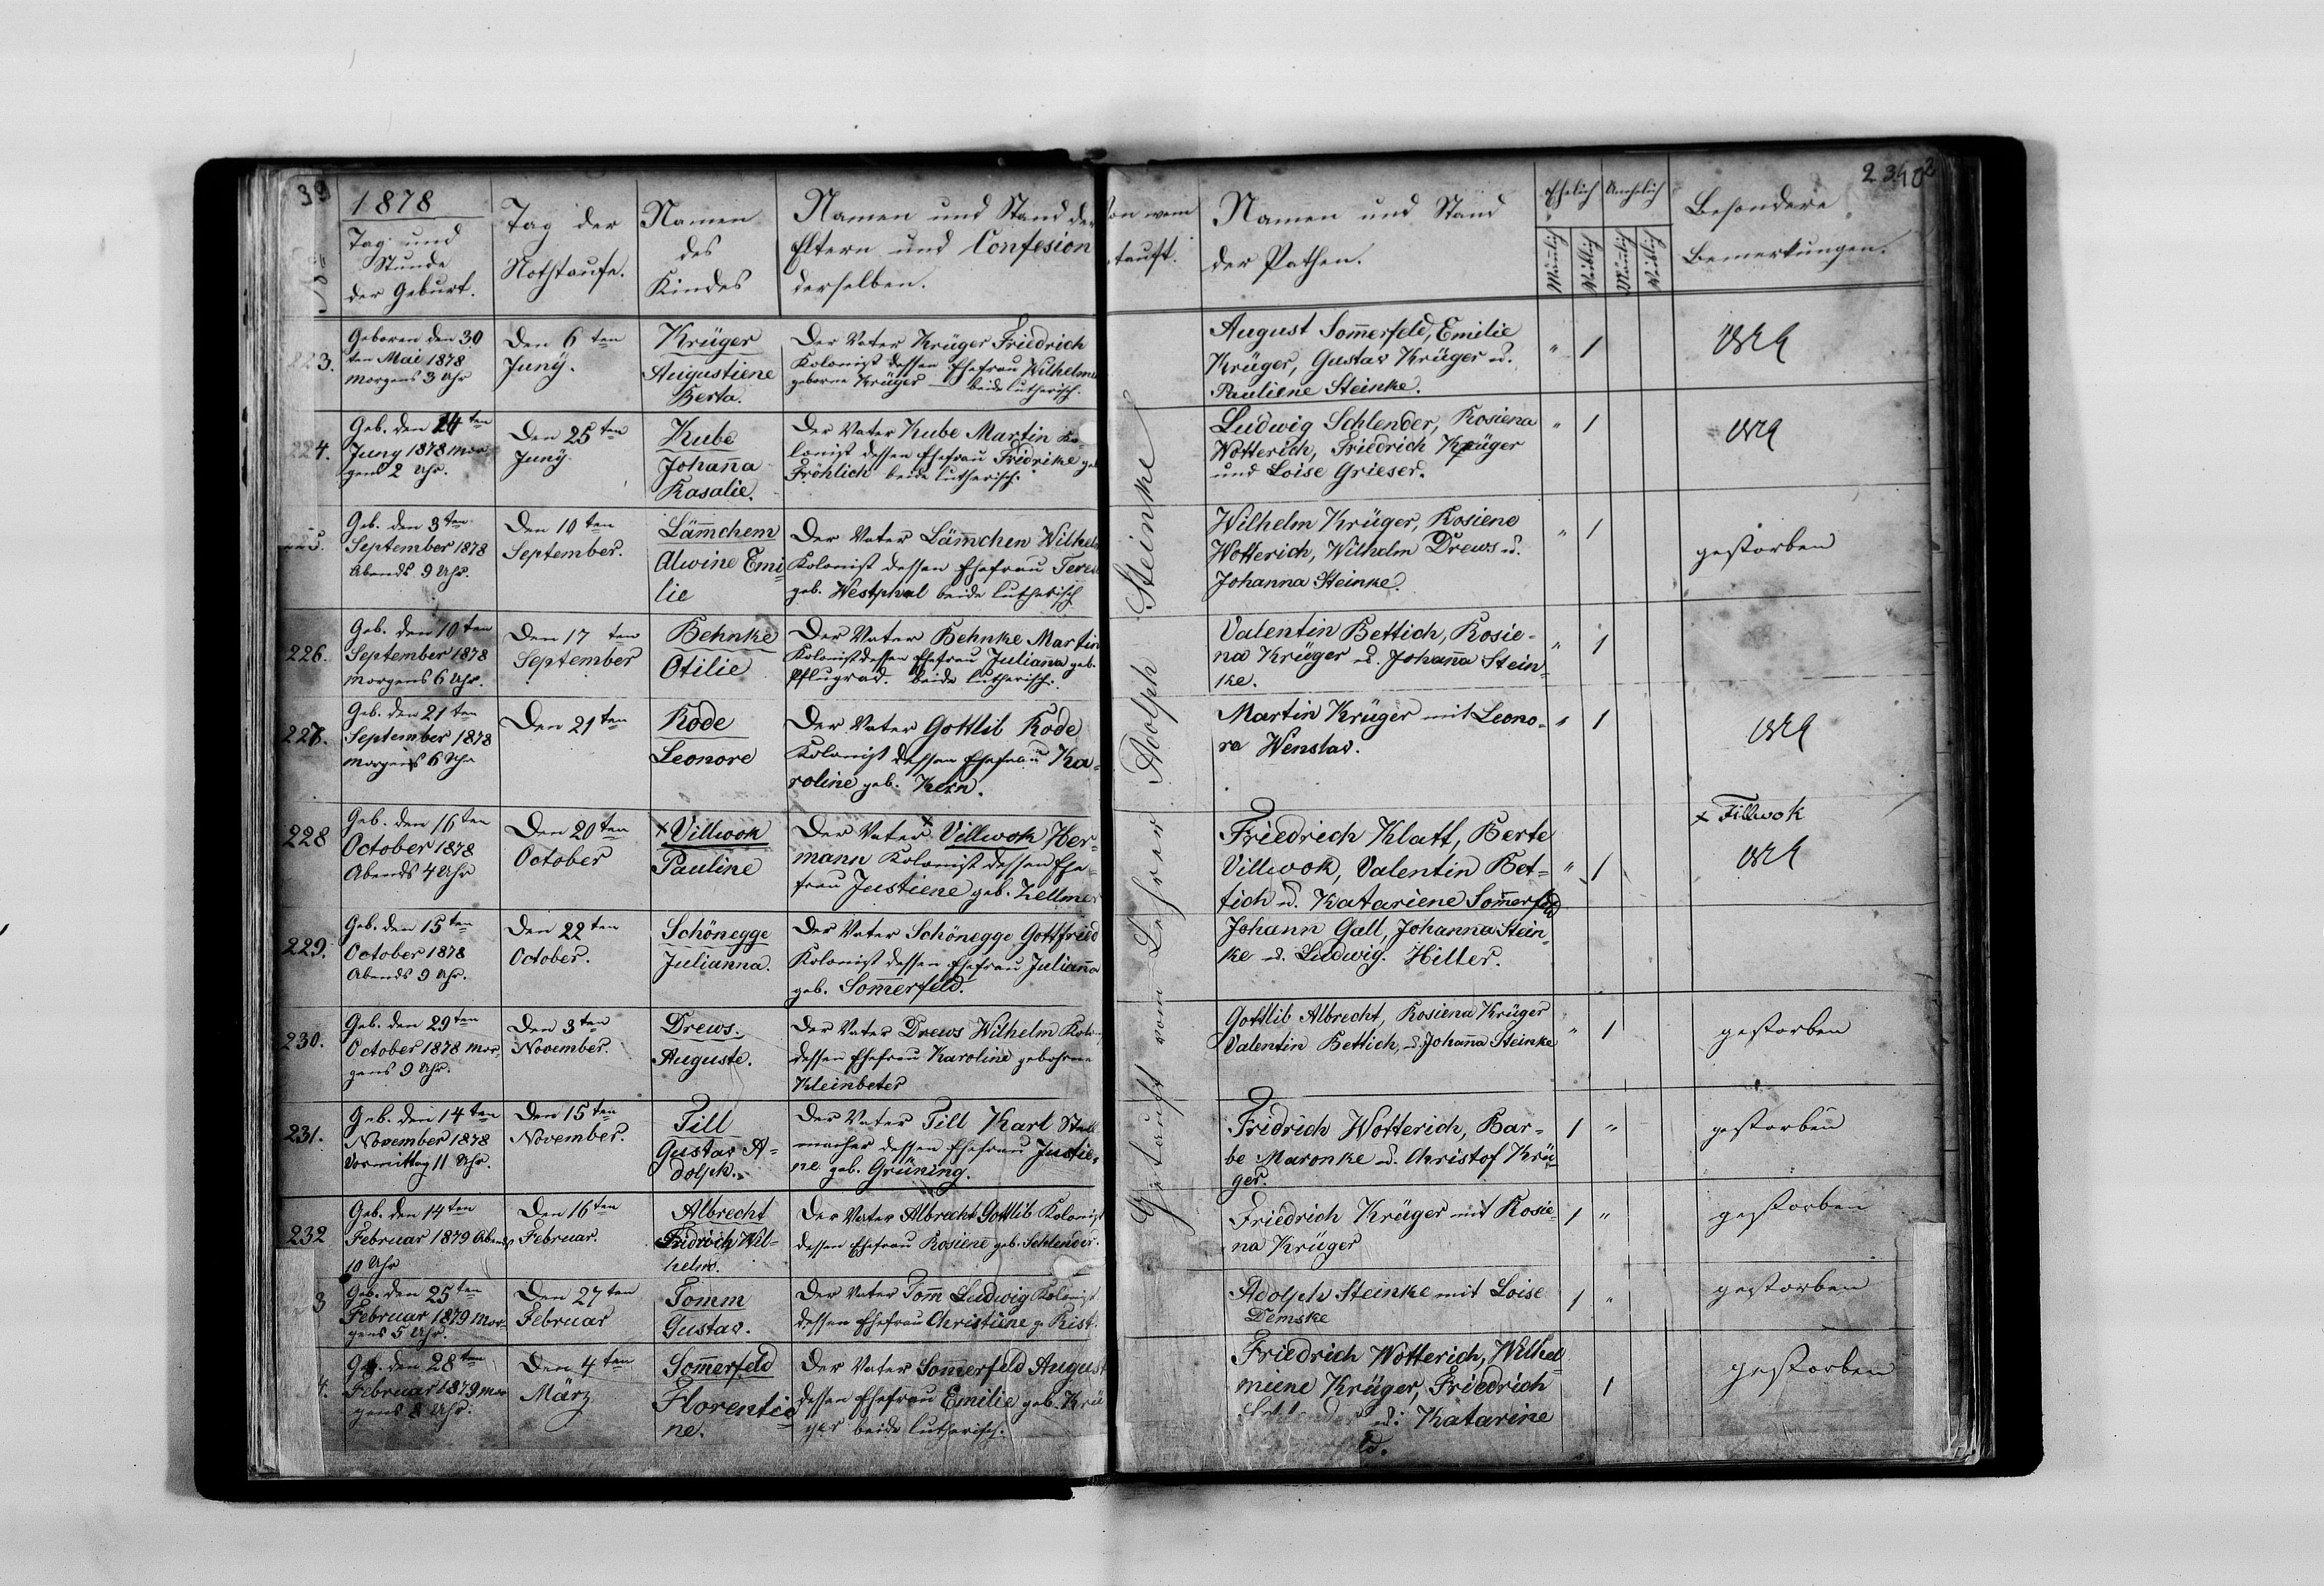 39
1878
Tag und
Stunde
der Geburt.
Tag der
Nothtaufe.
Namen
des
Kindes
Namen und Stand der
Eltern und Confesion
derselben.
223.
Geboren den 30
ten Mai 1878
morgens 3 Uhr
Den 6ten
Juny.
Krüger
Augustiene
Berta.
Der Vater Krüger Friedrich
Kolonist dessen Ehefrau Wilhelmi
geborne Krüger beide lutherisch.
224.
Geb. den 24ten
Juny 1878 mor
gens 2 Uhr.
Den 25ten
Juny.
Kube
Johanna
Rasalie.
Der Vater Kube Martin Ko-
lonist dessen Ehefrau Fridrike geb
Fröhlich beide lutherisch.
225.
Geb. den 3ten
September 1878
Abends 9 Uhr.
Den 10ten
September.
Läm̄chem
Alwine Emi
lie
Der Vater Läm̄chen Wilhel
Kolonist dessen Ehefrau Teres
geb. Westphal beide lutherisch
226.
Geb. den 10ten
September 1878
morgens 6 Uhr.
Den 17ten
September
Behnke
Otilie
Der Vater Behnke Martin
Kolonist dessen Ehefrau Juliana geb.
Pflugrad. beide lutherisch.
227.
Geb. den 21ten
September 1878
morgens 6 Uhr
Den 21ten
Rode
Leonore
Der Vater Gottlib Rode
Kolonist dessen Ehefrau Ka-
roline geb. Kern.
228
Geb. den 16ten
October 1878
Abends 4 Uhr
Den 20ten
October
x Villwok
Pauline
Der Vater x Villwok Her-
mann Kolonist dessen Ehe-
frau Justiene geb. Zellmer
229.
Geb. den 15ten
October 1878
Abends 9 Uhr.
Den 22ten
October.
Schönegge
Julianna.
Der Vater Schönegge Gottfried
Kolonist dessen Ehefrau Julian̄a
geb. Som̄erfeld.
230.
Geb. den 29ten
October 1878 mor,
gens 9 Uhr.
Den 3ten
November.
Drews.
Auguste.
Der Vater Drews Wilhelm Kolo-
dessen Ehefrau Karoline geborne
Kleinbeter
231.
Geb. den 14ten
November 1878
Vormittag 11 Uhr.
Den 15ten
November.
Till
Gustav A-
dolph.
Der Vater Till Karl Stell
macher dessen Ehefrau Justie,
ne geb. Grüning.
232
Geb. den 14ten
Februar 1879 Abends
10 Uhr
Den 16ten
Februar.
Albrecht
Fridrich Wil-
helm.
Der Vater Albrecht Gottlib Kolonist
dessen Ehefrau Rosiene geb. Schlender.
3
Geb. den 25ten
Februar 1879 Mor-
gens 5 Uhr.
Den 27ten
Februar
Tomm
Gustav.
Der Vater Tom̄ Ludwig Kolonist
dessen Ehefrau Christiene g. Rist.
4.
Geb. den 28ten
Februar 1879 mor
gens 8 Uhr.
Den 4ten
März
Som̄erfeld
Florentie
ne.
Der Vater Som̄erfeld August
dessen Ehefrau Emilie geb. Krü
ger beide lutherisch.
Von wem
tauft.
Getauft vom Lehrer Adolph Steinke
Namen und Stand
der Pathen.
Ehelich
Unehelich
Mänlich
Weiblich
Mänlich
Weiblich
Besondere
Bemerkungen.
August Som̄erfeld, Emilie
Krüger, Gustav Krüger u.
Pauliene Steinke.
" 1
Ludwig Schlender, Rosiena
Wotterich, Friedrich Krüger
und Loise Grieser.
" 1
Wilhelm Krüger, Rosiene
Wotterich, Wilhelm Drews u.
Johanna Steinke.
" 1
gestorben
Valentin Bettich, Rosie-
na Krüger u. Johan̄a Stein-
ke.
" 1
Martin Krüger mit Leono-
re Wenslav.
" 1
x Fillwok
Friedrich Klatt, Berte
Villwok, Valentin Bet=
tich u. Katariene Som̄erfeld
" 1
Johann Gall, Johanna Stein-
ke u. Ludwig. Hiller.
Gottlib Albrecht, Rosiena Krüger
Valentin Bettich, u. Johan̄a Steinke
" 1
gestorben
Fridrich Wotterich, Bar=
be Maronke u. Christof Krü-
ger.
1 "
gestorben
Friedrich Krüger mit Rosie-
na Krüger
1 "
gestorben
Adolph Steinke mit Loise
Demske
1 "
gestorben
Friedrich Wotterich, Wilhel
miene Krüger, Friedrich
u. Katarine
1
gestorben